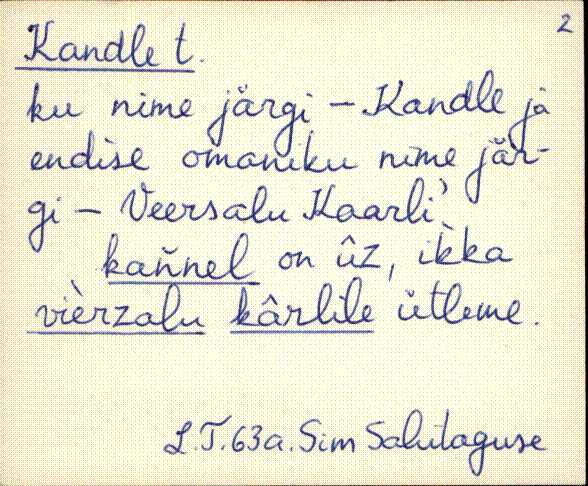 2
Kandle t.
ku nime järgi – Kandle ja
endise omaniku nime jär-
gi – Veersalu Kaarli.
kaňnel on ûz, ikka
vièrzalu kârlile ütleme.
L.T. 63a. Sim Salutaguse